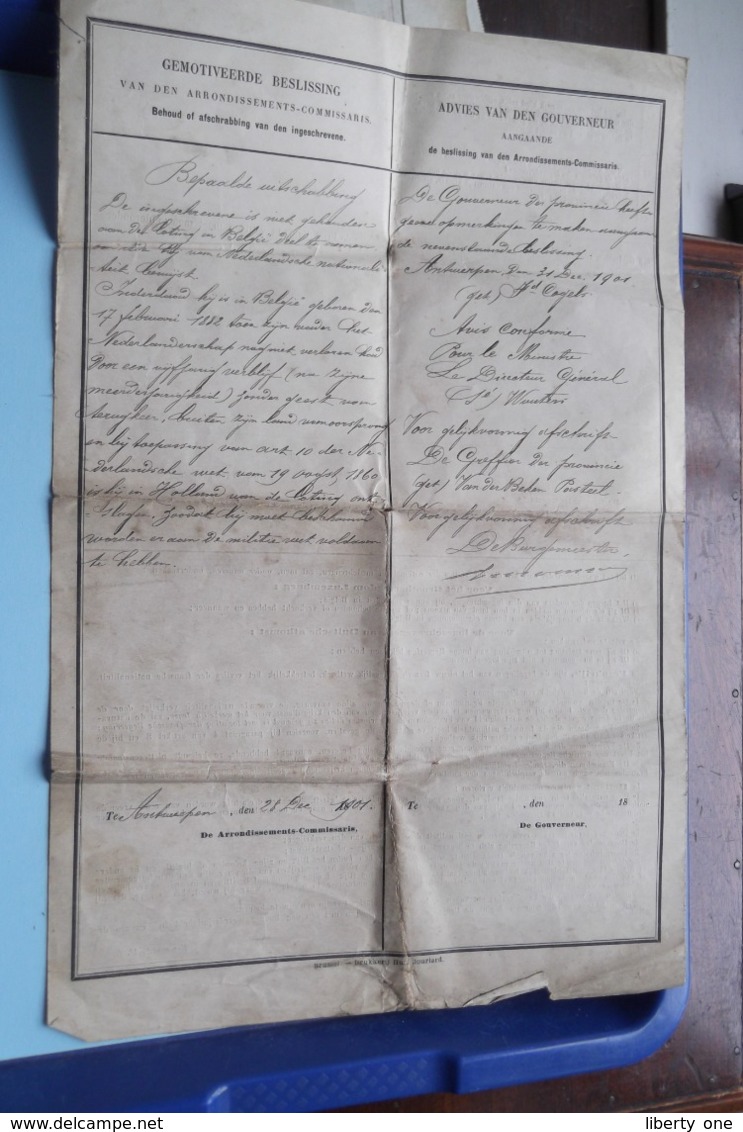 GEMOTIVEERDE BESLISSING
VAN DEN ARRONDISSEMENTS-COMMISSARIS.
Behoud of afschrabbing van den ingeschrevene.
Bepaalde uitschrabbing
De ingeschrevene is niet gehouden
aan de loting in België deel te nemen
en die hij van Nederlandsche nationali-
teit bewijst.
Inderdaad hij is in België geboren den
17 februari 1882 toen zijn vader het
Nederlanderschap nog niet verloren had
door een vijfjarig verblijf (na zijne
meerderjarigheid) zonder geest van
terugkeer, buiten zijn land van oorsprong
en bij toepassing van art. 10 der Ne-
derlandsche wet van 19 oogst 1860
is hij in Holland van de loting ont-
slagen, zoodat hij moet beschouwd
worden er aan de militie wet voldaan
te hebben.
Te Antwerpen, den 28 Dec 1901.
De Arrondissements-Commissaris,
ADVIES VAN DEN GOUVERNEUR
AANGAANDE
de beslissing van den Arrondissements-Commissaris.
De Gouverneur der provincie heeft
geene opmerkingen te maken aangaande
de nevenstaande beslissing.
Antwerpen den 31 Dec. 1901
(get) Fd Cogels
Avis conforme
Pour le Ministre
Le Directeur Général
(Sé) Wouters
Voor gelijkvormig afschrift
De Greffier der provincie
(get) Van der Beken Pasteel
Voor gelijkvormig afschrift
De Burgmeester,
Te , den 18
De Gouverneur,
liberty one